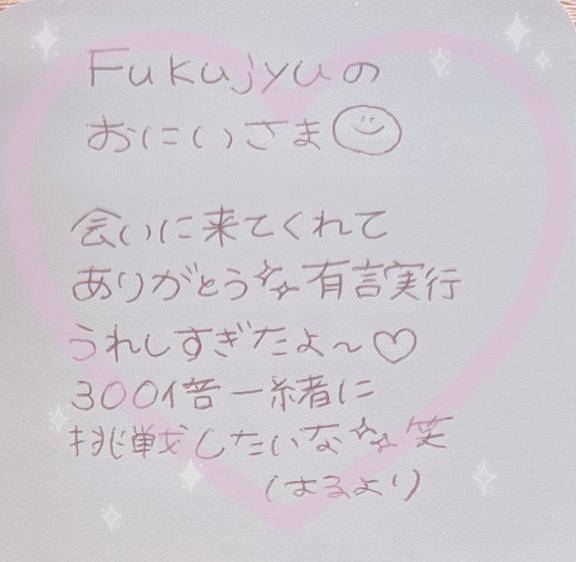 Fukujyuの
おにいさま
会いに来てくれて
ありがとう✨有言実行
うれしすぎたよ〜♡
300倍一緒に
挑戦したいな✨笑
はるより